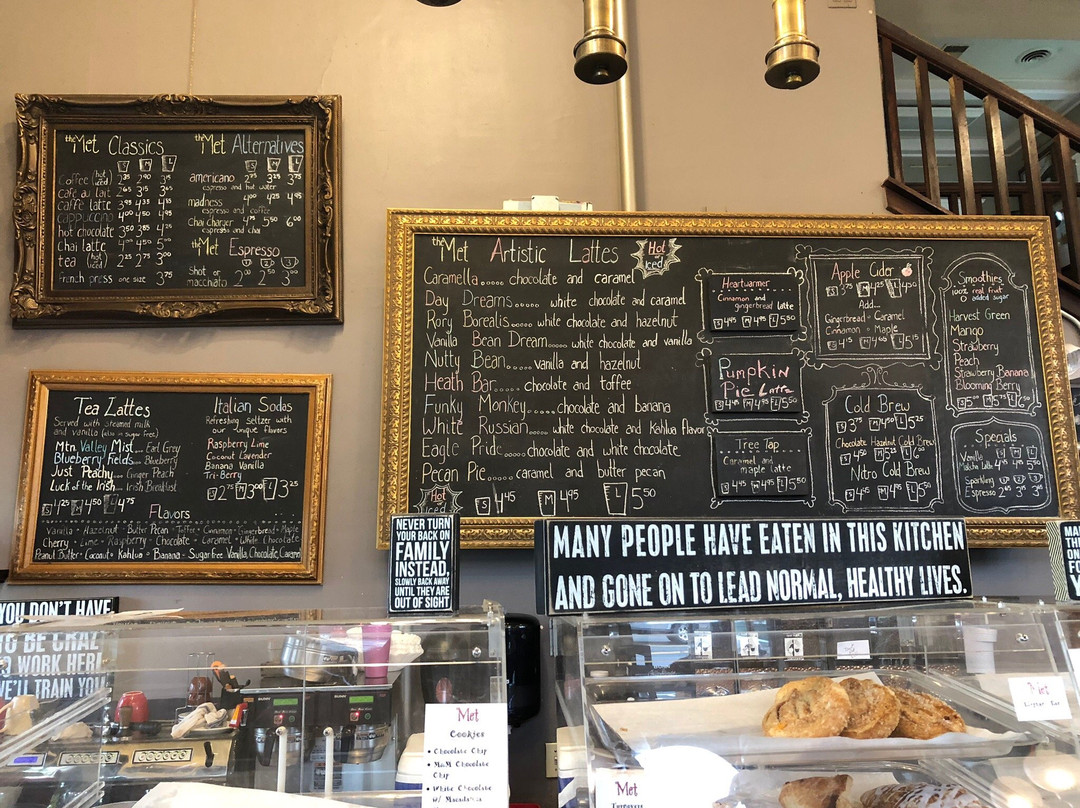 the Met Classics
S M L
Coffee (hot iced) 2.25 2.90 3.15
café au lait 2.65 3.15 3.65
caffe latte 3.95 4.35 4.95
cappuccino 4.00 4.50 4.95
hot chocolate 3.50 3.85 4.25
chai latte 4.00 4.50 5.00
tea (hot iced) 2.25 2.75 3.00
French press one size 3.75
the Met Alternatives
S M L
americano 2.75 3.25 3.75
espresso and hot water
madness 4.00 4.25 4.95
espresso and coffee
Chai Charger 4.75 5.50 6.00
espresso and chai
the Met Espresso
1 2 3
Shot or
macchiato 2.00 2.50 3.00
Tea Lattes
Served with steamed milk
and vanilla (also in sugar free)
Mtn. Valley Mist... Earl Grey
Blueberry Fields... Blueberry
Just Peachy... Ginger Peach
Luck of the Irish... Irish Breakfast
S 4.25 M 4.50 L 4.75
Italian Sodas
Refreshing seltzer with
our unique flavors
Raspberry Lime
Coconut Lavender
Banana Vanilla
Tri-Berry
S 2.75 M 3.00 L 3.25
Flavors
Vanilla • Hazelnut • Butter Pecan • Toffee • Cinnamon • Gingerbread • Maple
Cherry • Lime • Raspberry • Chocolate • Caramel • White Chocolate
Peanut Butter • Coconut • Kahlua • Banana • Sugar free Vanilla, Chocolate, Caramel
the Met Artistic Lattes
Hot
Iced
Caramella..... chocolate and caramel
Day Dreams..... white chocolate and caramel
Rory Borealis..... white chocolate and hazelnut
Vanilla Bean Dream..... white chocolate and vanilla
Nutty Bean..... vanilla and hazelnut
Heath Bar..... chocolate and toffee
Funky Monkey..... chocolate and banana
White Russian..... white chocolate and Kahlua flavor
Eagle Pride..... chocolate and white chocolate
Pecan Pie..... caramel and butter pecan
Hot
S 4.45 M 4.95 L 5.50
Heartwarmer
Cinnamon and
gingerbread latte
S 4.45 M 4.95 L 5.50
Pumpkin
Pie Latte
S 4.45 M 4.95 L 5.50
Tree Tap
Caramel and
maple latte
S 4.45 M 4.95 L 5.50
Apple Cider
S 3.75 M 4.25 L 4.50
Add...
Gingerbread • Caramel
Cinnamon • Maple
S 4.45 M 4.60 L 5.15
Cold Brew
S 3.75 M 4.50 L 5.00
Chocolate Hazelnut Cold Brew
S 4.50 M 4.95 L 5.50
Nitro Cold Brew
S 4.45 M 4.95 L 5.50
Smoothies
100% real fruit
0 added sugar
Harvest Green
Mango
Strawberry
Peach
Strawberry Banana
Blooming Berry
Specials
Vanilla
Matcha Latte
Sparkling
Espresso
NEVER TURN
YOUR BACK ON
FAMILY
INSTEAD,
SLOWLY BACK AWAY
UNTIL THEY ARE
OUT OF SIGHT
MANY PEOPLE HAVE EATEN IN THIS KITCHEN
AND GONE ON TO LEAD NORMAL, HEALTHY LIVES.
YOU DON'T HAVE
WORK HERE
WE'LL TRAIN YOU
Met
Cookies
• Chocolate Chip
• M&M Chocolate
Chip
• White Chocolate
W/ Macadamia
Met
Met